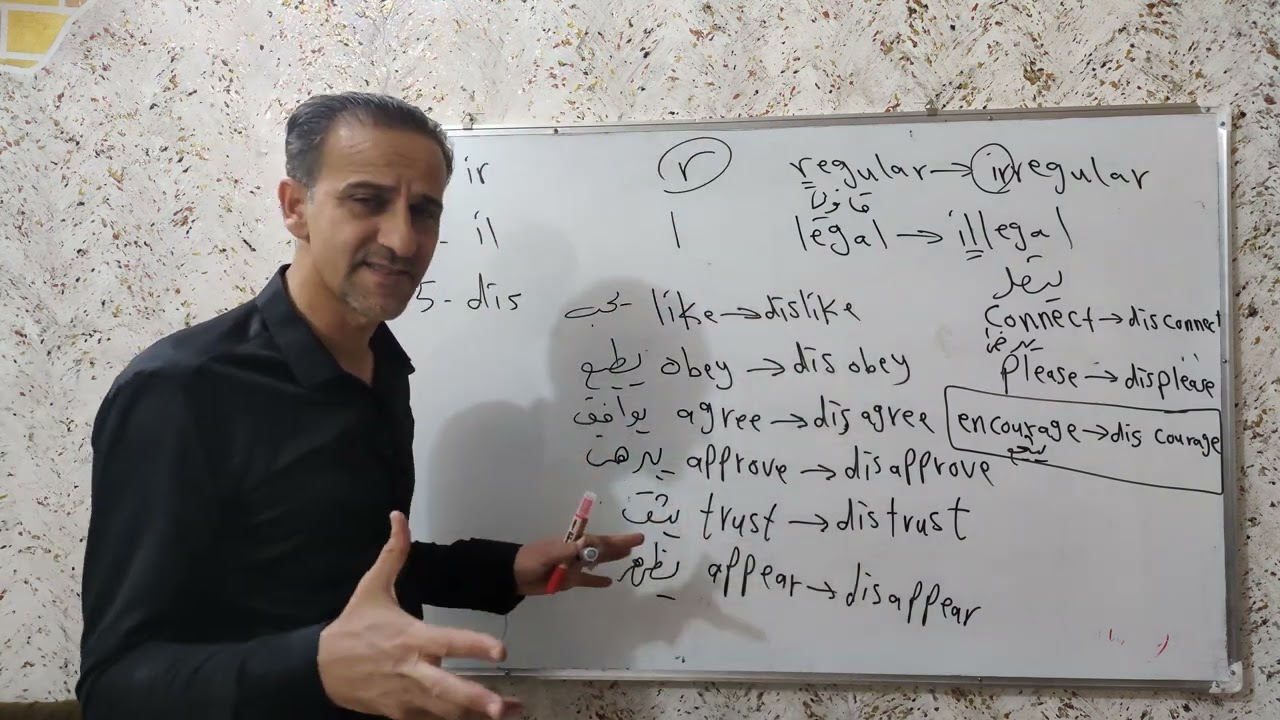 ir r regular → irregular
قانونيا
il l legal → illegal
يتصل
5- dis يحب like → dislike connect → disconnect
يرضي
يطيع obey → disobey please → displease
يوافق agree → disagree encourage → discourage
يشجع
approve → disapprove
يثق trust → distrust
يظهر appear → disappear